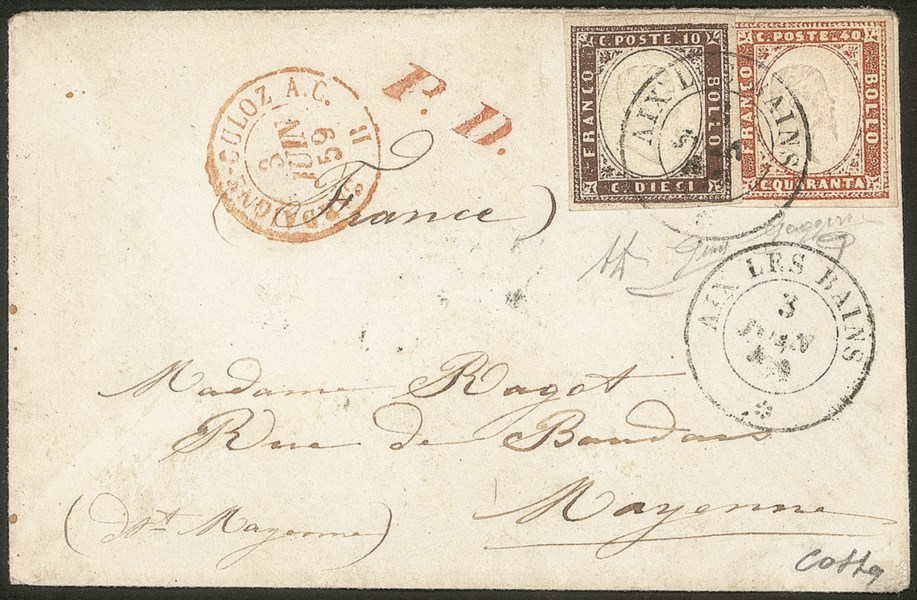 C. POSTE. 10
FRANCO
BOLLO
C. DIECI
C. POSTE. 40
FRANCO
BOLLO
C. QUARANTA
AIX LES BAINS
P. D.
CULOZ A.C.
3
JUIN
59
(France)
AIX LES BAINS
3
JUIN
Madame Raget
Rue de Baudais
Mayenne
(Dt. Mayenne)
Costa